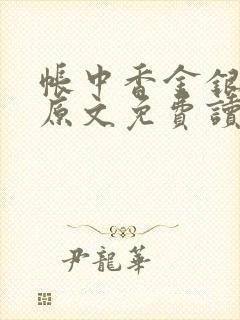 帳中香金銀
原文免費讀
尹龍華